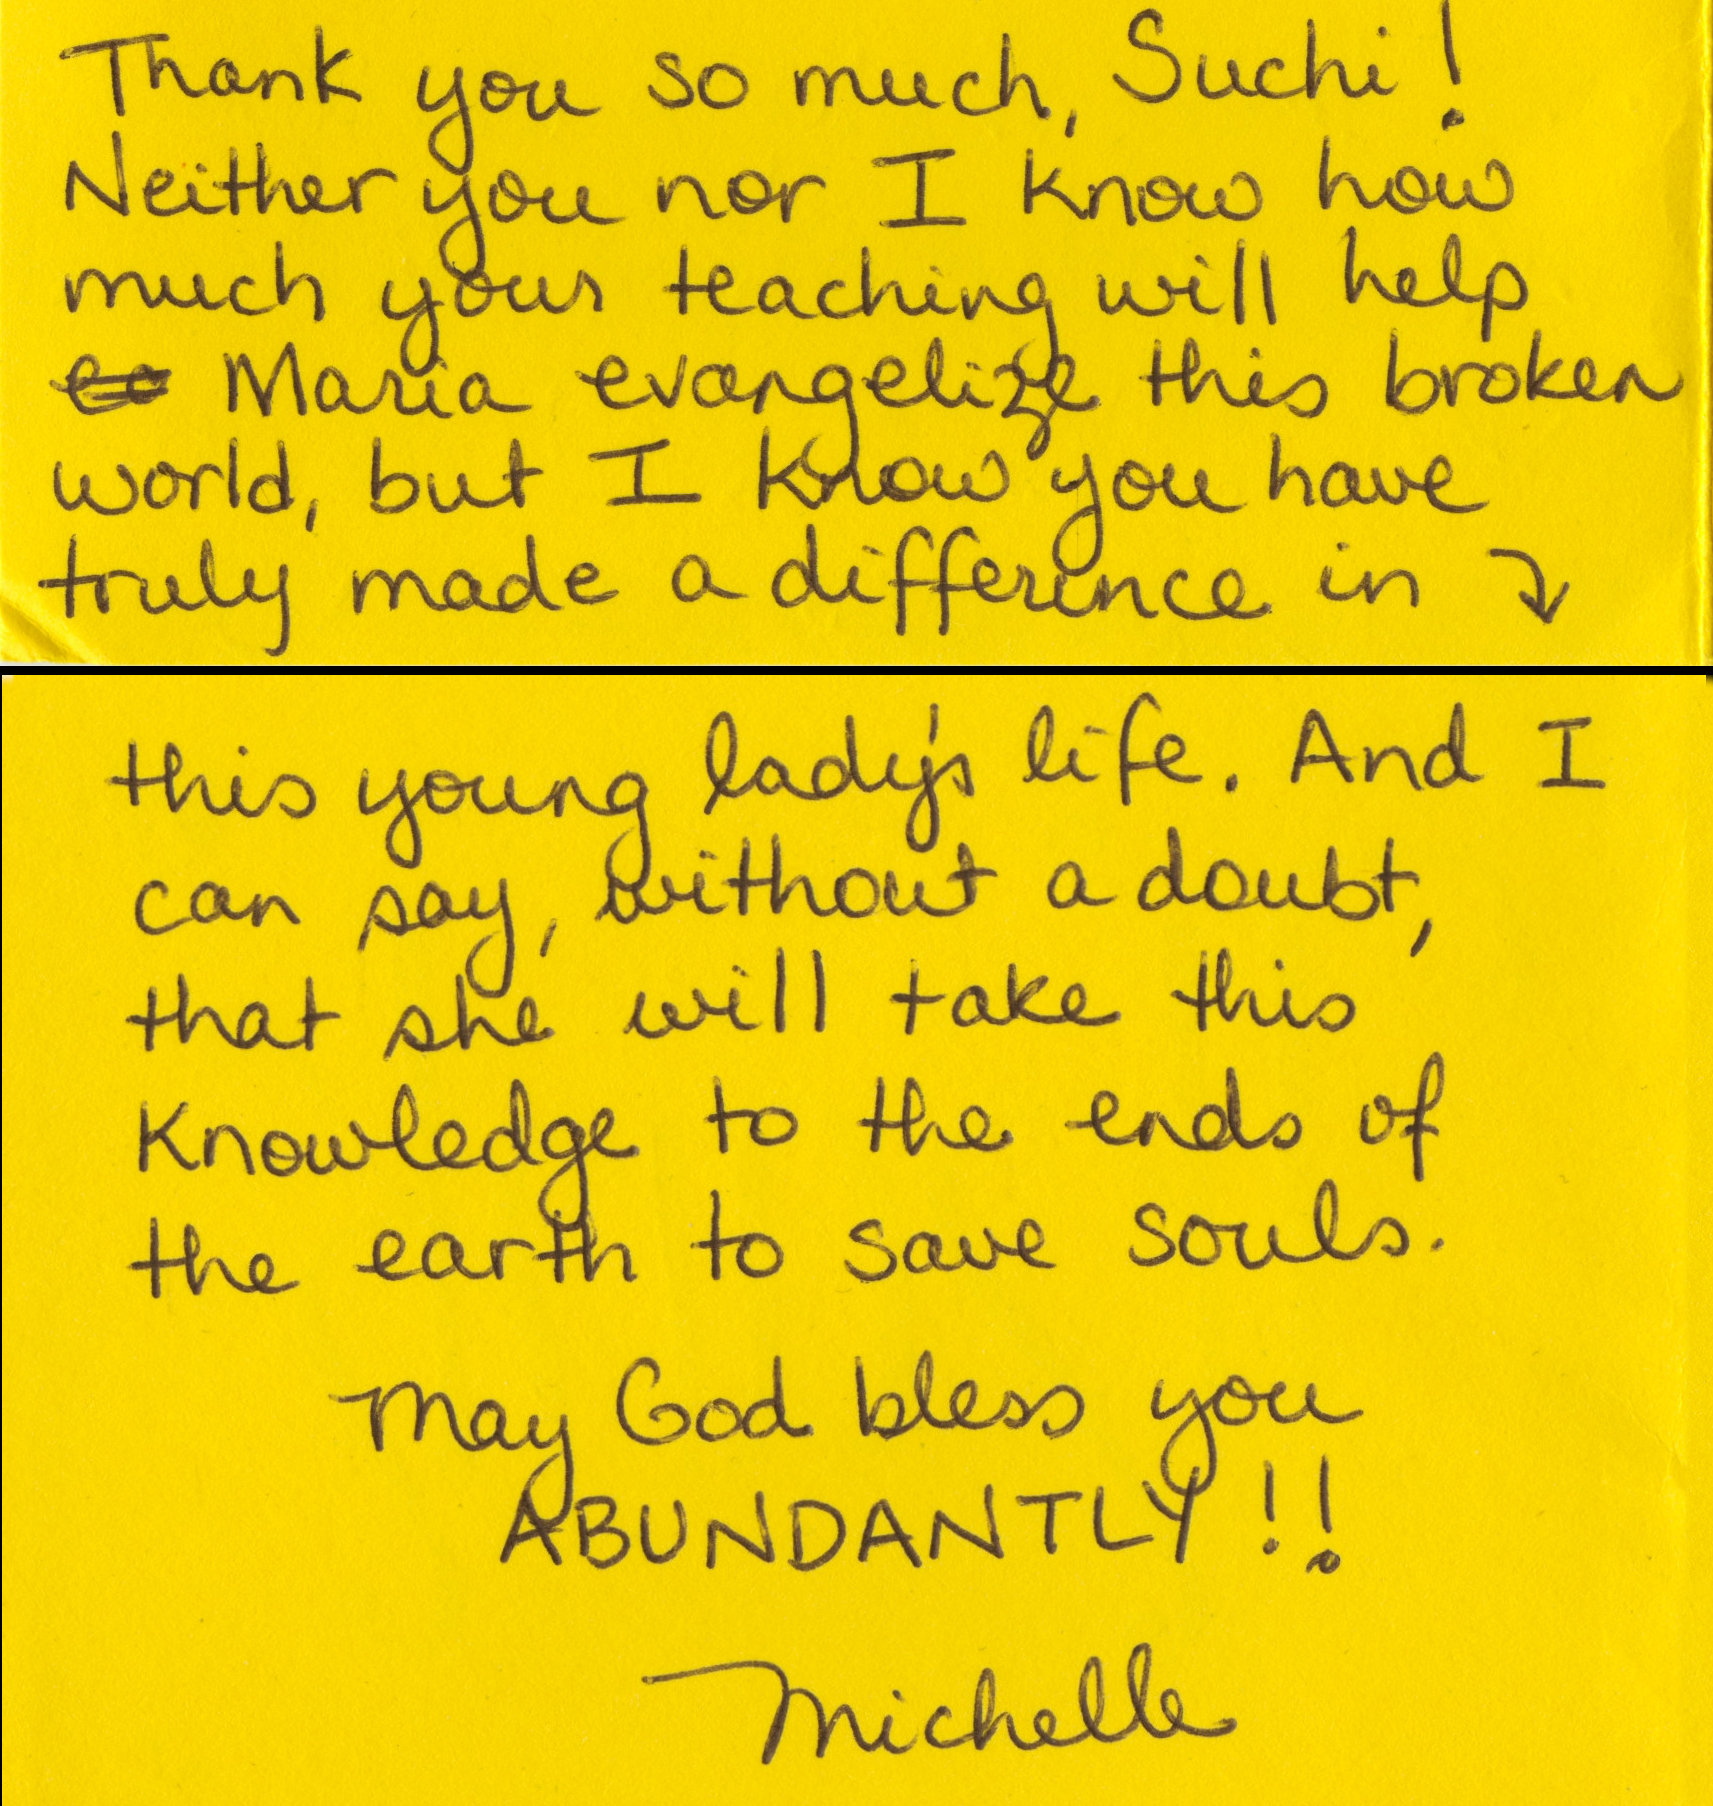 Thank you so much, Suchi!
Neither you nor I know how
much your teaching will help
Maria evangelize this broken
world, but I know you have
truly made a difference in ↘
this young lady's life. And I
can say, without a doubt,
that she will take this
knowledge to the ends of
the earth to save souls.
May God bless you
ABUNDANTLY!!
Michelle